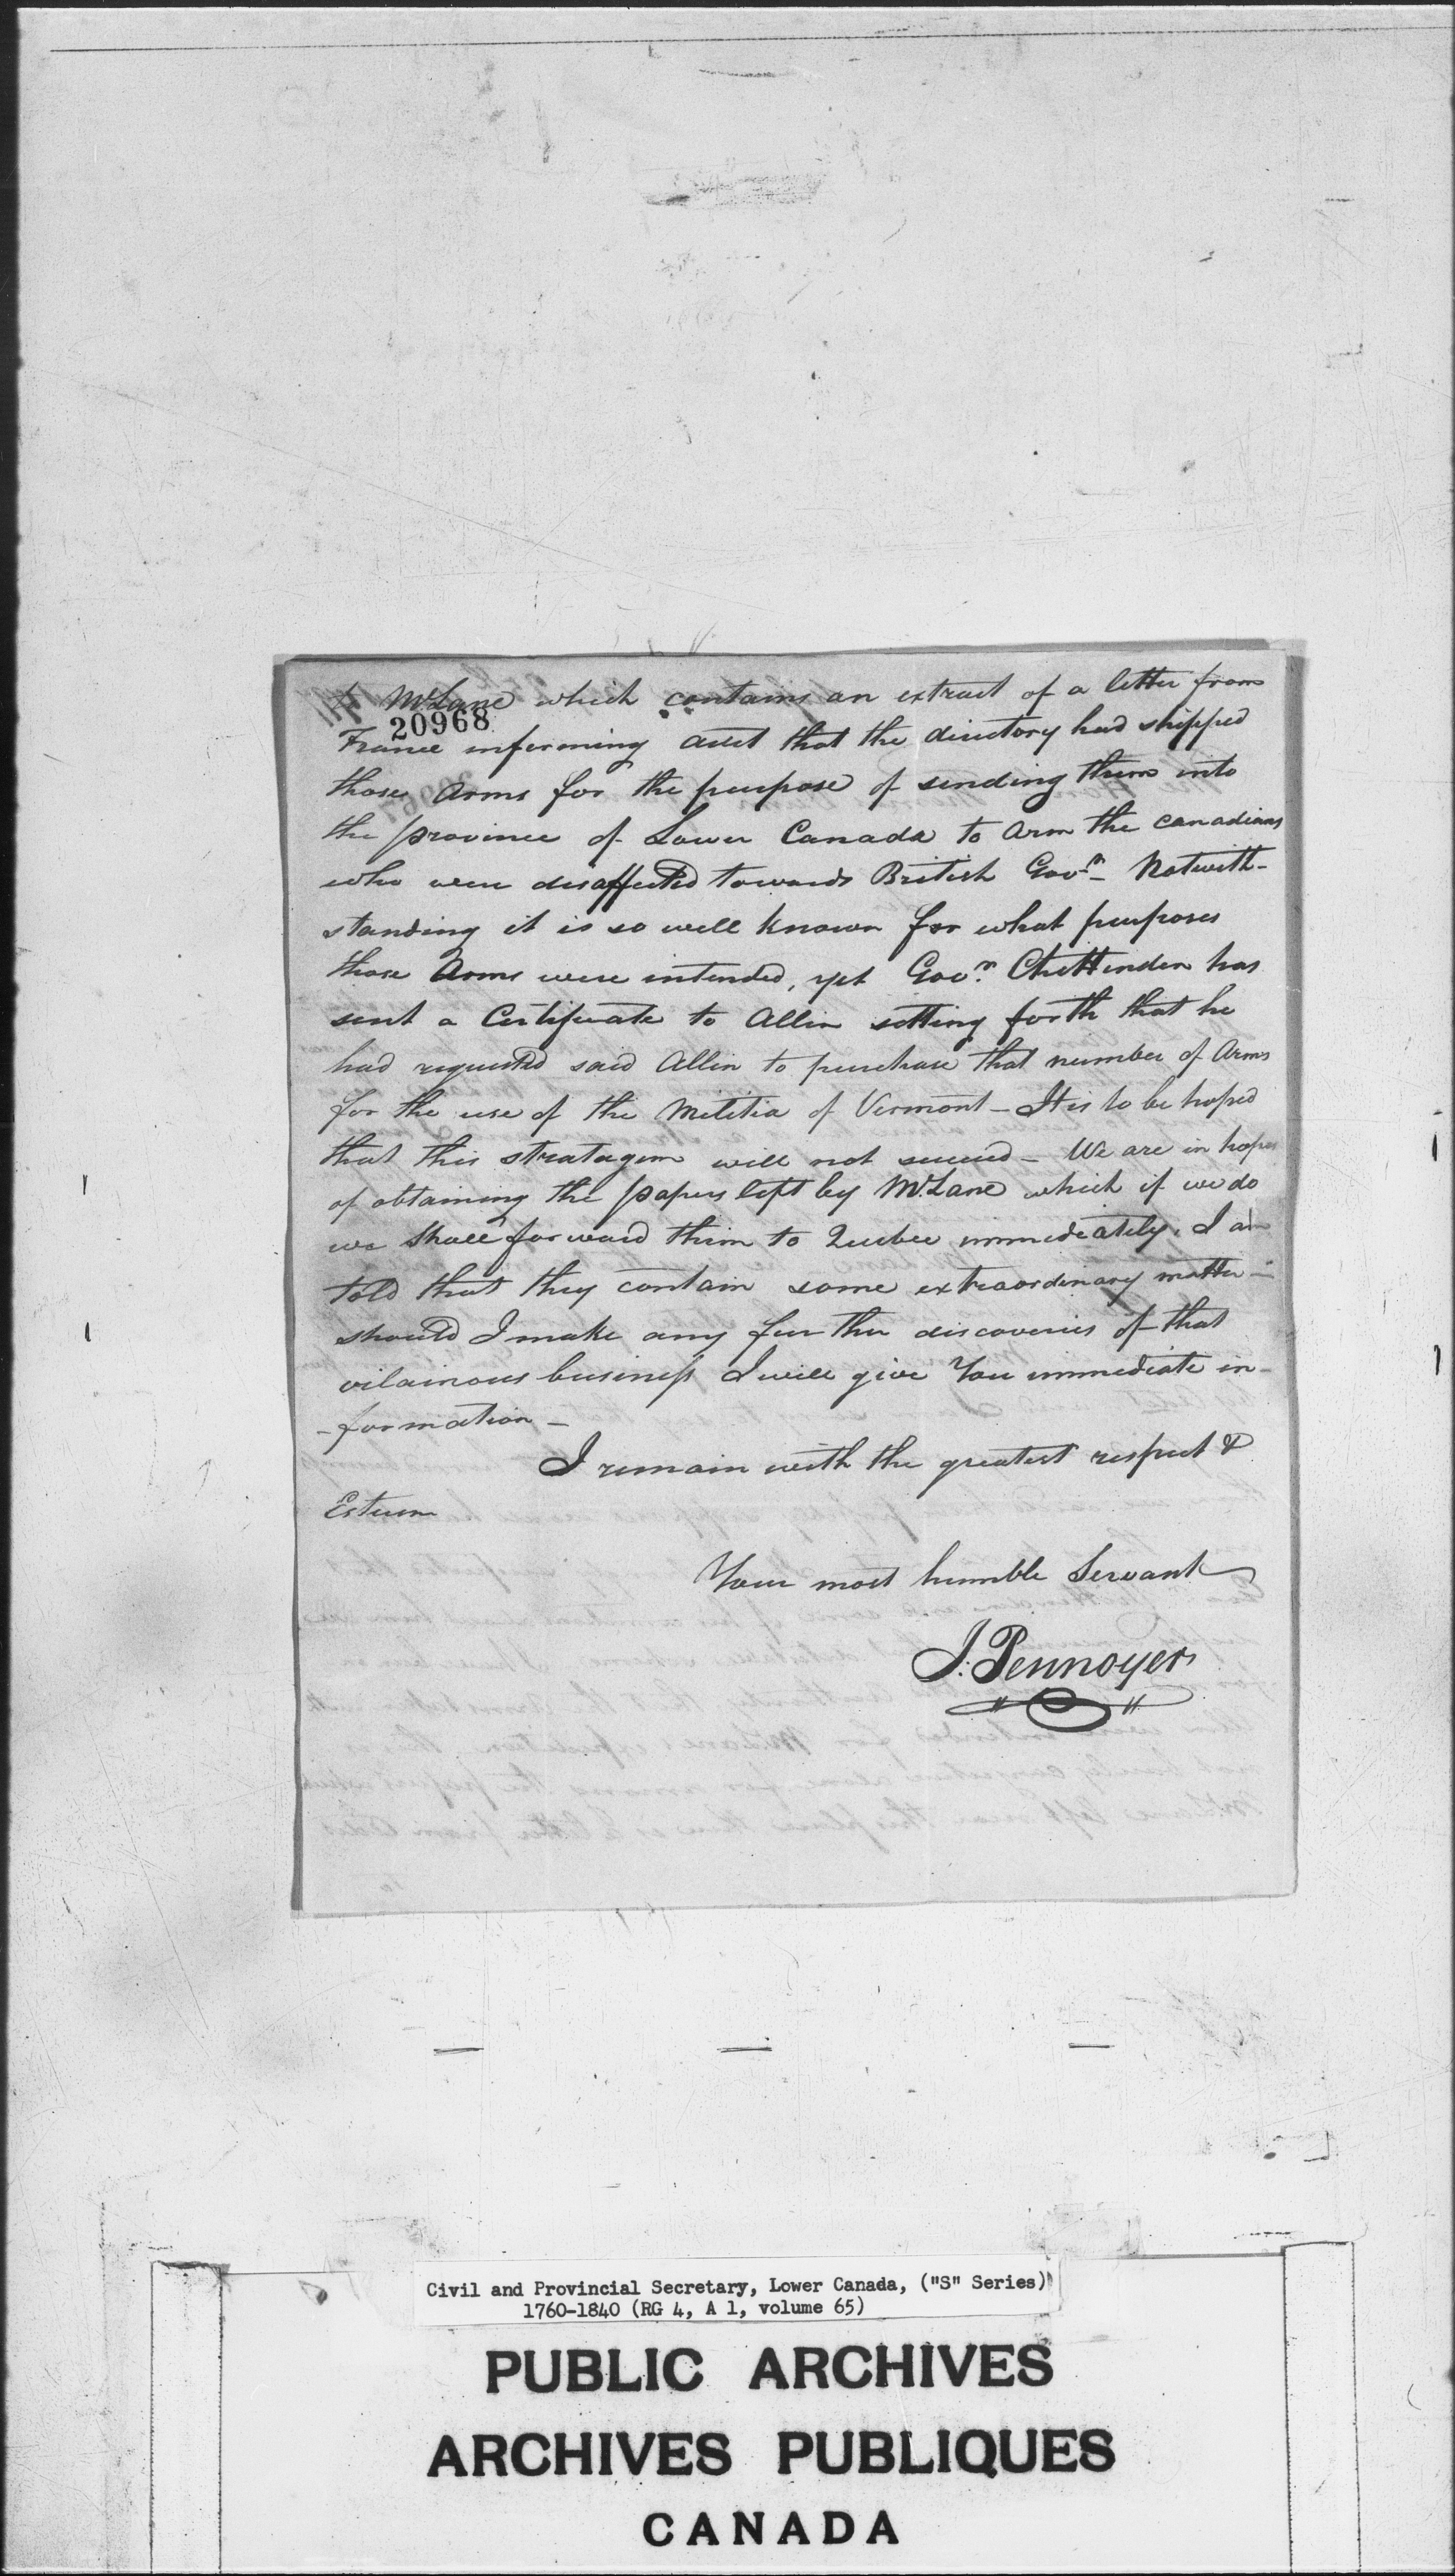 McLane which contains an extract of a letter from
20968
France informing Adet that the directory had shipped
those Arms for the purpose of sending them into
the province of Lower Canada to Arm the canadians
who were disaffected towards British Govt_ Notwith-
standing it is so well known for what purposes
those Arms were intended, yet Govr. Chittenden has
sent a Certificate to Allin setting forth that he
had requested said Allin to purchase that number of Arms
for the use of the Militia of Vermont_ It is to be hoped
that this stratagem will not succeed_ We are in hopes
of obtaining the papers left by McLane which if we do
we shall forward them to Quebec immediately. I am
told that they contain some extraordinary matter_
should I make any further discoveries of that
vilainous business I will give You immediate in-
-formation_
I remain with the greatest respect &
Esteem
Your most humble Servant
J. Pennoyer
Civil and Provincial Secretary, Lower Canada, ("S" Series)
1760-1840 (RG 4, A 1, volume 65)
PUBLIC ARCHIVES
ARCHIVES PUBLIQUES
CANADA